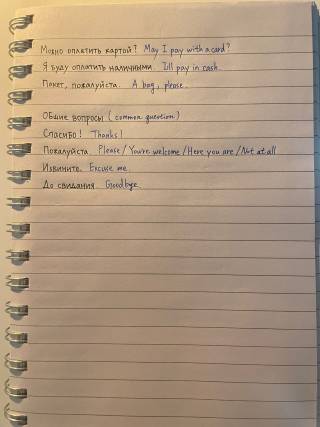 Можно оплатить картой? May I pay with a card?
Я буду оплатить наличными. I'll pay in cash.
Пакет, пожалуйста. A bag, please.
Общие вопросы (common question)
Спасибо! Thanks!
Пожалуйста. Please/You're welcome/Here you are/Not at all
Извините. Excuse me.
До свидания. Goodbye.